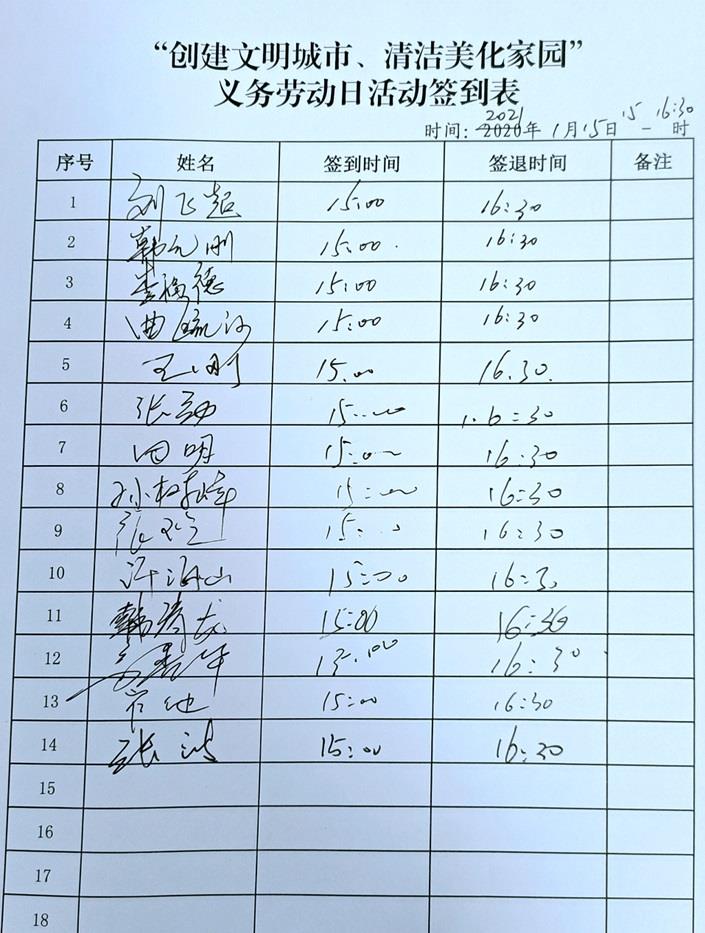 “创建文明城市、清洁美化家园”
义务劳动日活动签到表
2021
时间：2020年 1月15日 15 - 16:30 时
序号 姓名 签到时间 签退时间 备注
1 刘飞超 15:00 16:30
2 韩 刚 15:00 16:30
3 德 15:00 16:30
4 曲 15:00 16:30
5 王刚 15:00 16:30
6 张勐 15:00 16:30
7 田明 15:00 16:30
8 孙 15:00 16:30
9 张 15:00 16:30
10 许海山 15:00 16:30
11 韩 龙 15:00 16:30
12 15:00 16:30
13 15:00 16:30
14 张波 15:00 16:30
15
16
17
18